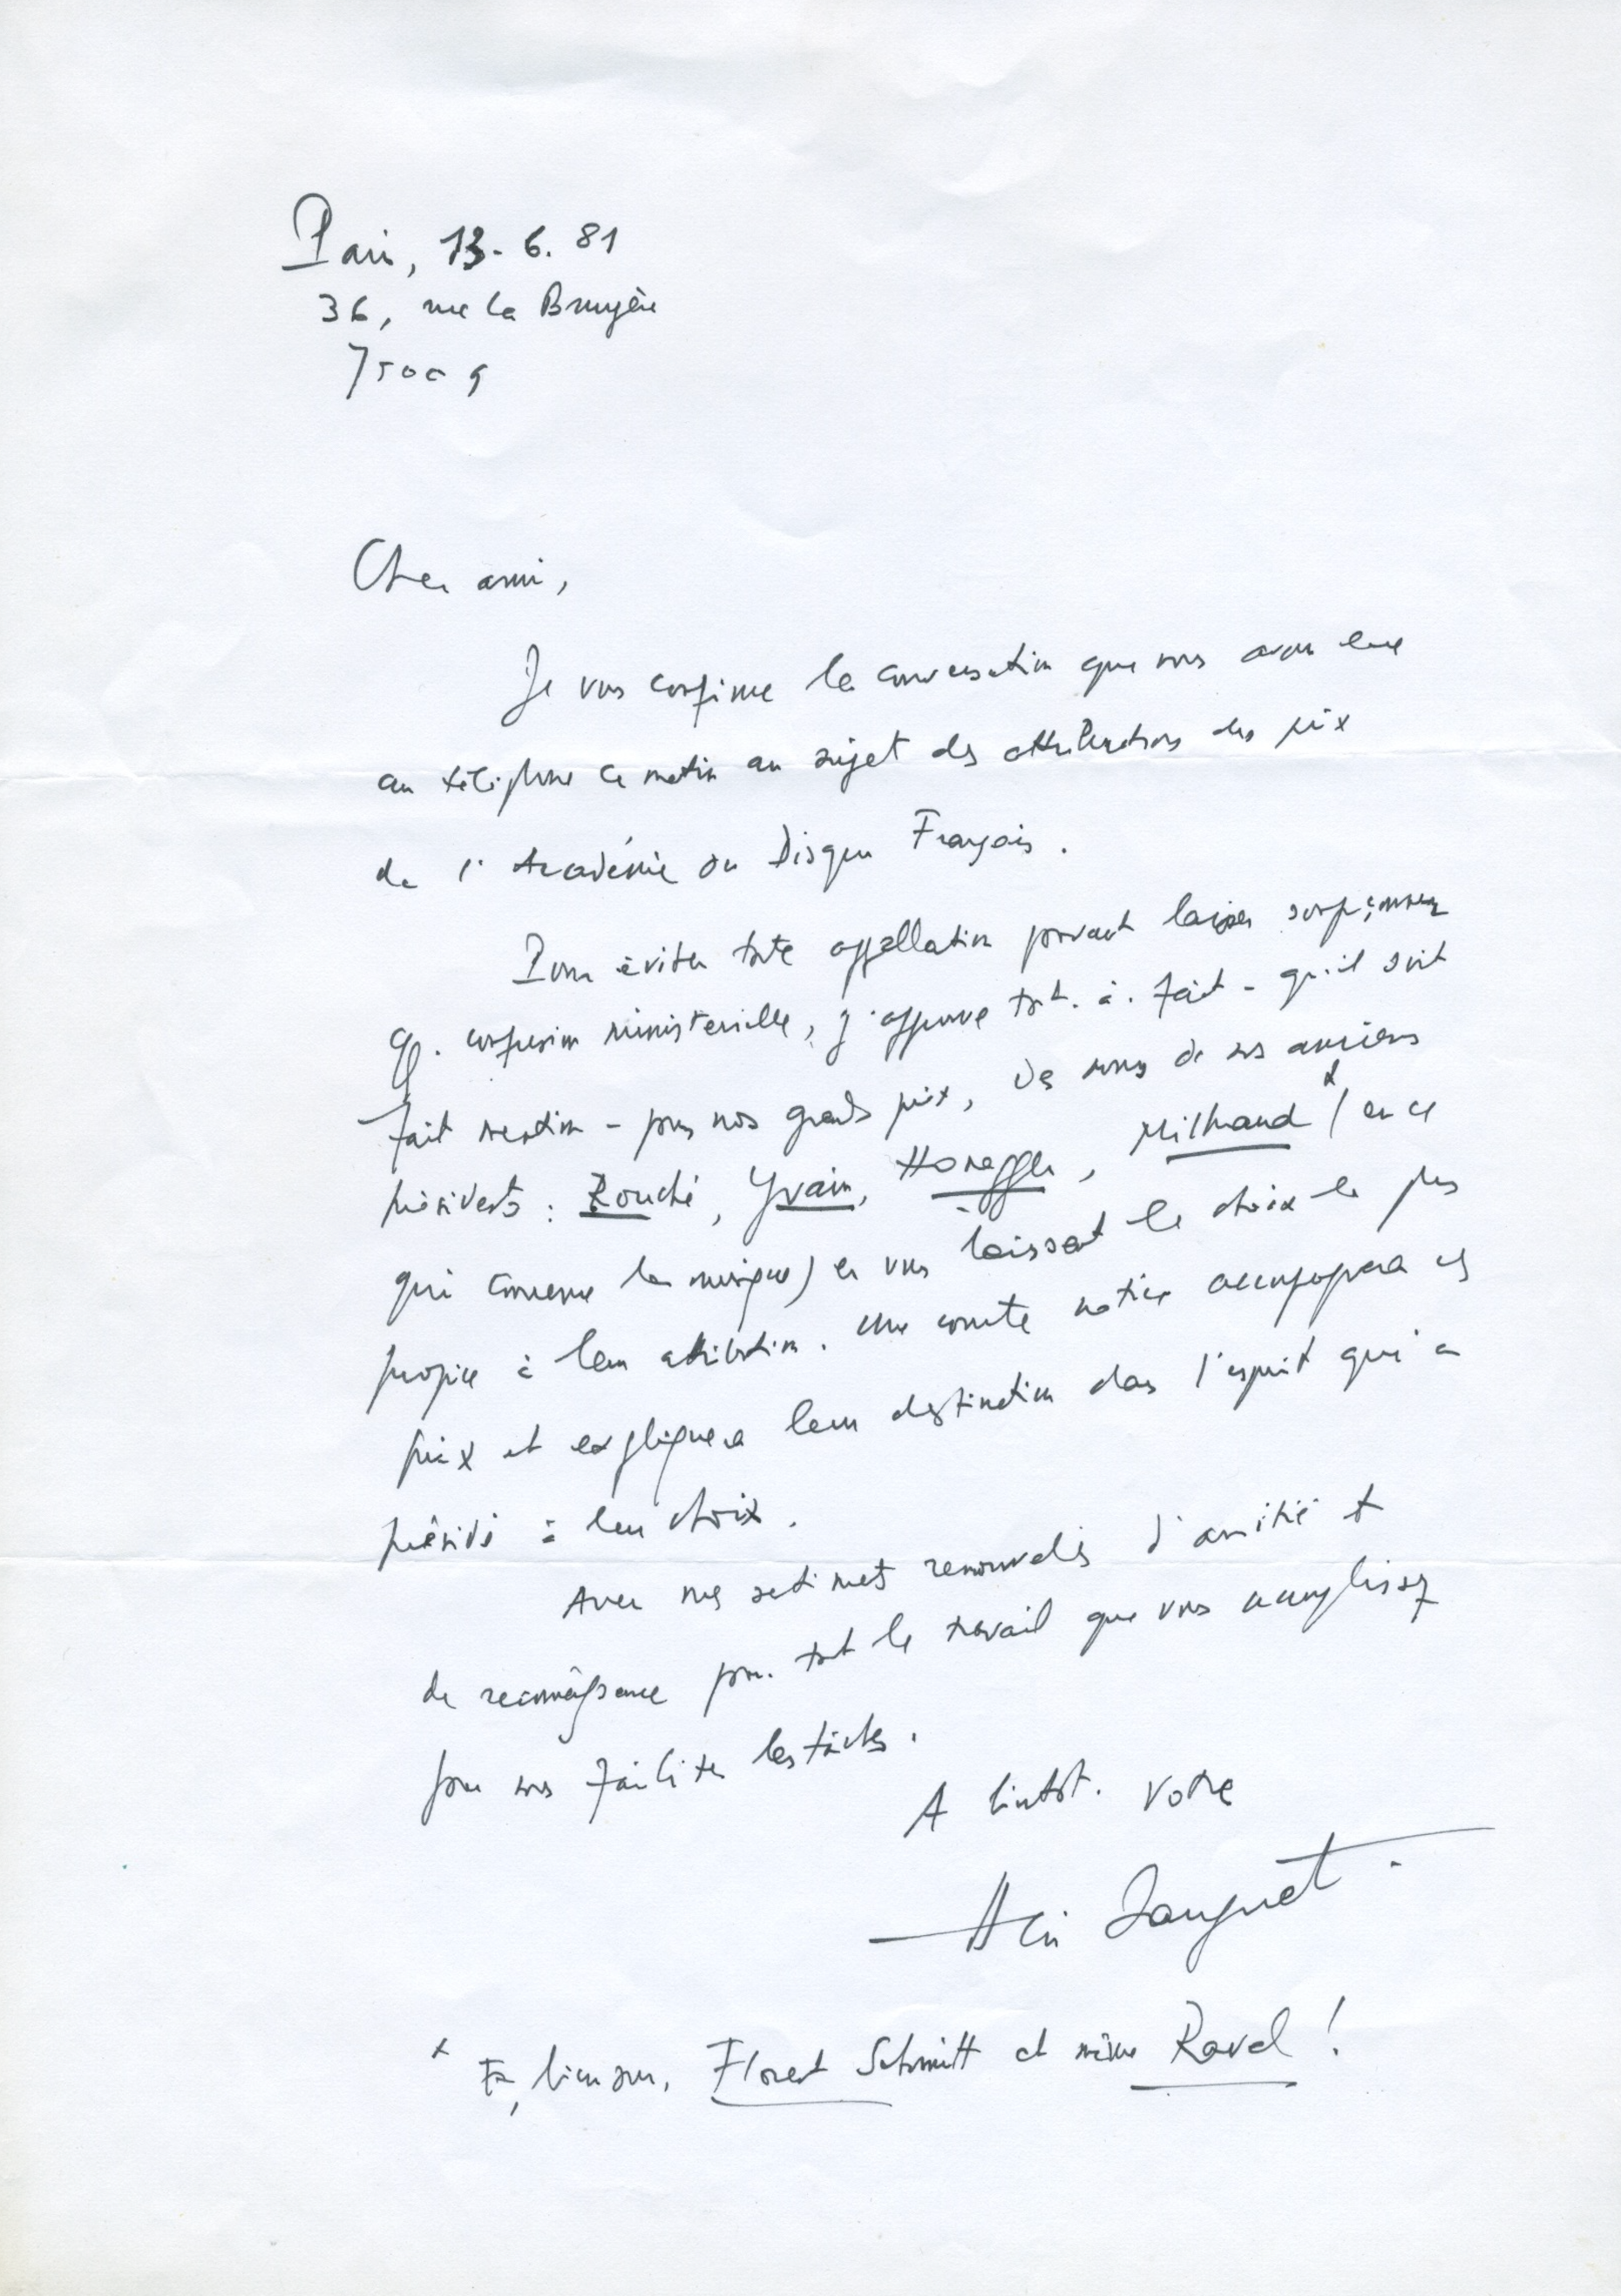 Paris, 13-6.81
36, rue la Bruyère
75009
Cher ami,
Je vous confirme la conversation que nous avons eue
au téléphone ce matin au sujet des attributions des prix
de l'Académie du Disque Français.
Pour éviter toute appellation pouvant laisser soupçonner
q. confusion ministérielle, j'approuve tout-à-fait - qu'il soit
fait mention - pour nos grands prix, des noms de nos anciens
présidents : Rouché, Yvain, Honegger, Milhaud x (en ce
qui concerne la musique) en vous laissant le choix le plus
propice à leur attribution. Une courte notice accompagnera ces
prix et expliquera leur destination dans l'esprit qui a
présidé à leur choix.
Avec mes sentiments renouvelés d'amitié et
de reconnaissance pour tout le travail que vous accomplissez
pour nous faciliter les tâches.
A bientôt. Votre
Henri Sauguet.
x Et, bien sûr, Florent Schmitt et même Ravel !